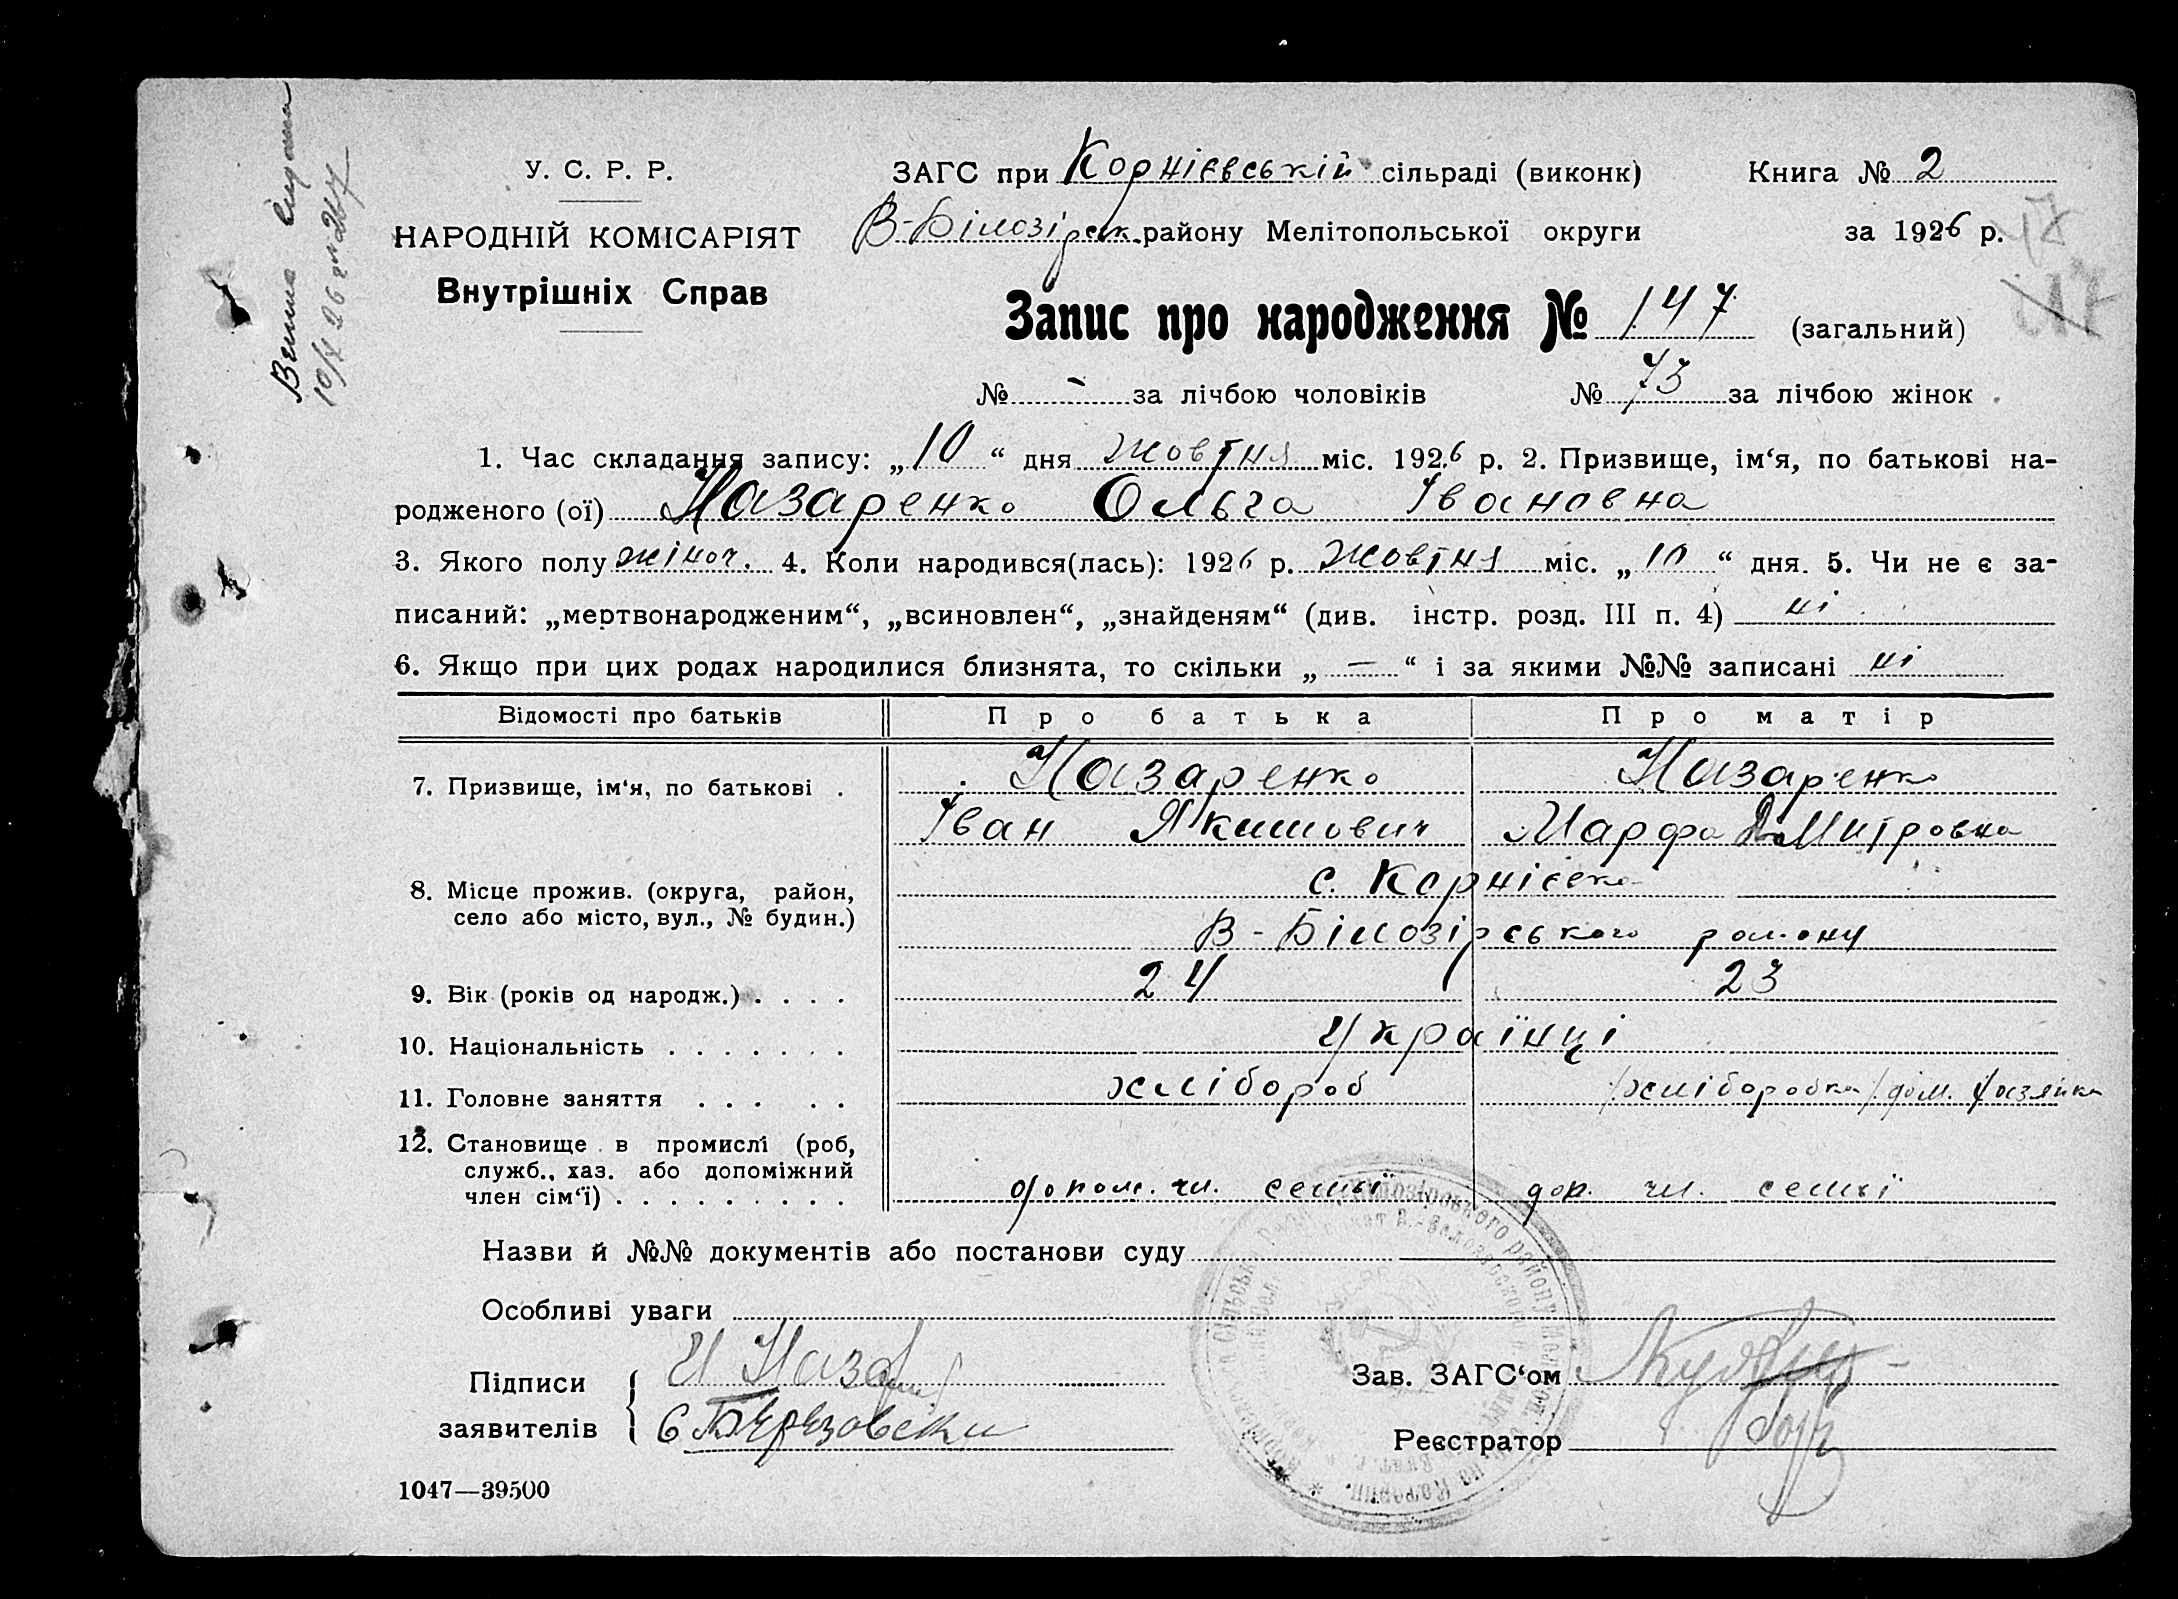 У. С. Р. Р.
НАРОДНІЙ КОМІСАРІЯТ
Внутрішніх Справ
ЗАГС при Корнієвській сільраді (виконк) Книга № 2
В-Білозірськ. району Мелітопольської округи за 1926 р.
Запис про народження № 147 (загальний)
№ - за лічбою чоловіків № 73 за лічбою жінок
1. Час складання запису: „10“ дня жовтня міс. 1926 р. 2. Призвище, ім‘я, по батькові на-
родженого (ої) Назаренко Ольга Івановна
3. Якого полу жіноч. 4. Коли народився(лась): 1926 р. жовтня міс. „10“ дня. 5. Чи не є за-
писаний: „мертвонародженим“, „всиновлен“, „знайденям“ (див. інстр. розд. III п. 4) ні
6. Якщо при цих родах народилися близнята, то скільки „—“ і за якими №№ записані ні
Відомості про батьків Про батька Про матір
7. Призвище, ім‘я, по батькові . Назаренко Назаренко
Іван Якимович Марфа Дмитровна
8. Місце прожив. (округа, район, с. Корнієвка
село або місто, вул., № будин.) В-Білозірського району
9. Вік (років од народж.) . . . . 24 23
10. Національність . . . . . . . Українці
11. Головне заняття . . . . . хлібороб /хліборобка/ дом. хозяйка
12. Становище в промислі (роб,
служб., хаз. або допоміжний
член сім‘ї) . . . . . . . . . допом. чл. семьї доп. чл. семьї
Назви й №№ документів або постанови суду
Особливі уваги
Підписи И Назар
заявителів Є Березовски
Зав. ЗАГС‘ом
Реєстратор
1047—39500